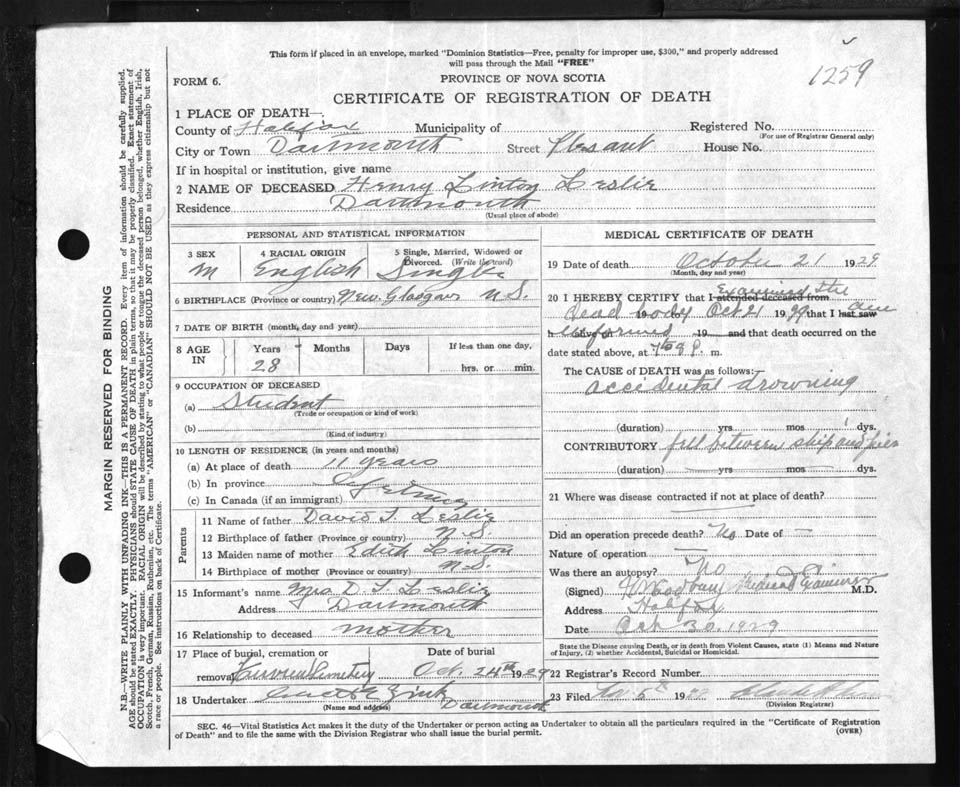 This form if placed in an envelope, marked "Dominion Statistics—Free, penalty for improper use, $300," and properly addressed
will pass through the Mail "FREE"
1259
FORM 6.
PROVINCE OF NOVA SCOTIA
CERTIFICATE OF REGISTRATION OF DEATH
1 PLACE OF DEATH—
County of Halifax Municipality of Registered No.
(For use of Registrar General only)
City or Town Dartmouth Street Plesant House No.
If in hospital or institution, give name
2 NAME OF DECEASED Henry Linton Leslie
Residence Dartmouth
(Usual place of abode)
PERSONAL AND STATISTICAL INFORMATION
3 SEX 4 RACIAL ORIGIN 5 Single, Married, Widowed or
Divorced. (Write the word)
M English Single
6 BIRTHPLACE (Province or country) New Glasgow N.S.
7 DATE OF BIRTH (month, day and year)
8 AGE IN Years Months Days If less than one day,
28 hrs. or min.
9 OCCUPATION OF DECEASED
(a) Student
(Trade or occupation or kind of work)
(b)
(Kind of industry)
10 LENGTH OF RESIDENCE (in years and months)
(a) At place of death 11 years
(b) In province
(c) In Canada (if an immigrant)
Parents
11 Name of father David T Leslie
12 Birthplace of father (Province or country) N.S.
13 Maiden name of mother Edith Linton
14 Birthplace of mother (Province or country) N.S.
15 Informant's name Mrs D. T. Leslie
Address Dartmouth
16 Relationship to deceased mother
17 Place of burial, cremation or Date of burial
removal Cemetery Oct. 24th 1929
18 Undertaker Zink
(Name and address) Dartmouth
MEDICAL CERTIFICATE OF DEATH
19 Date of death October 21 1929
(Month, day and year)
20 I HEREBY CERTIFY that I attended deceased from Examined the
dead body 19 to Oct 21 1929 that I last saw
h alive on 19 and that death occurred on
date stated above, at m.
The CAUSE of DEATH was as follows:
accidental drowning
(duration) yrs mos dys.
CONTRIBUTORY fell between ship and pier
(duration) yrs mos dys.
21 Where was disease contracted if not at place of death?
Did an operation precede death? No Date of —
Nature of operation —
Was there an autopsy? No
(Signed) Medical Examiner M.D.
Address Halifax
Date Oct 30. 1929
State the Disease causing Death, or in death from Violent Causes, state (1) Means and Nature
of Injury, (2) whether Accidental, Suicidal or Homicidal.
22 Registrar's Record Number
23 Filed 19
(Division Registrar)
SEC. 46—Vital Statistics Act makes it the duty of the Undertaker or person acting as Undertaker to obtain all the particulars required in the "Certificate of Registration
of Death" and to file the same with the Division Registrar who shall issue the burial permit.
(OVER)
MARGIN RESERVED FOR BINDING
N.B.—WRITE PLAINLY WITH UNFADING INK—THIS IS A PERMANENT RECORD. Every item of information should be carefully supplied.
AGE should be stated EXACTLY. PHYSICIANS should STATE CAUSE OF DEATH in plain terms, so that it may be properly classified. Exact statement of
OCCUPATION is very important. RACIAL ORIGIN will be described by stating to what people or tongue the deceased person belonged, whether English, Irish,
Scotch, French, German, Russian, Ruthenian, etc. The terms "AMERICAN" or "CANADIAN" SHOULD NOT BE USED as they express citizenship but not
a race or people. See instructions on back of Certificate.